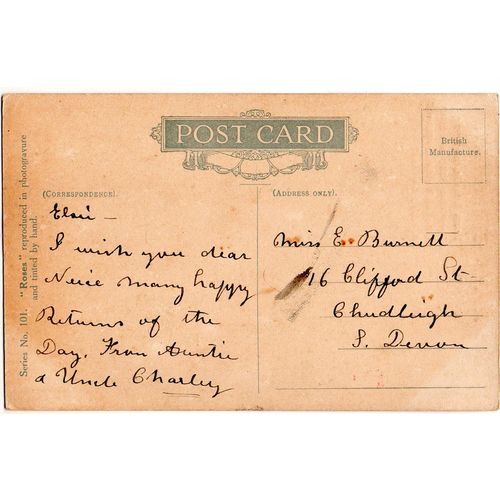 POST CARD
British
Manufacture.
(CORRESPONDENCE).
(ADDRESS ONLY).
Series No. 101. "Roses" reproduced in photogravure
and tinted by hand.
Elsie -
I wish you dear
Neice many happy
Returns of the
Day. From Auntie
& Uncle Charley
Miss E. Burnett
16 Clifford St
Chudleigh
S. Devon